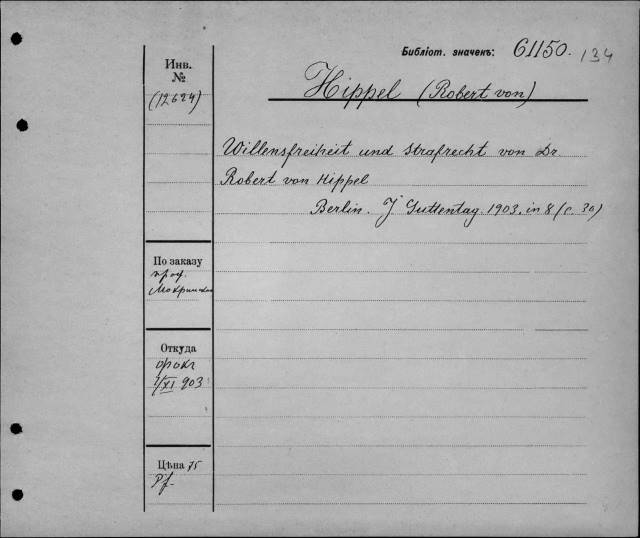 Библіот. значекъ: 61150. 134
Инв.
№
(12624)
Hippel (Robert von)
Willensfreiheit und Strafrecht von Dr.
Robert von Hippel
Berlin. J Guttentag 1903. in 8 (с. 30)
По заказу
проф.
Откуда
1/XI 903
Цѣна 75
Pf.